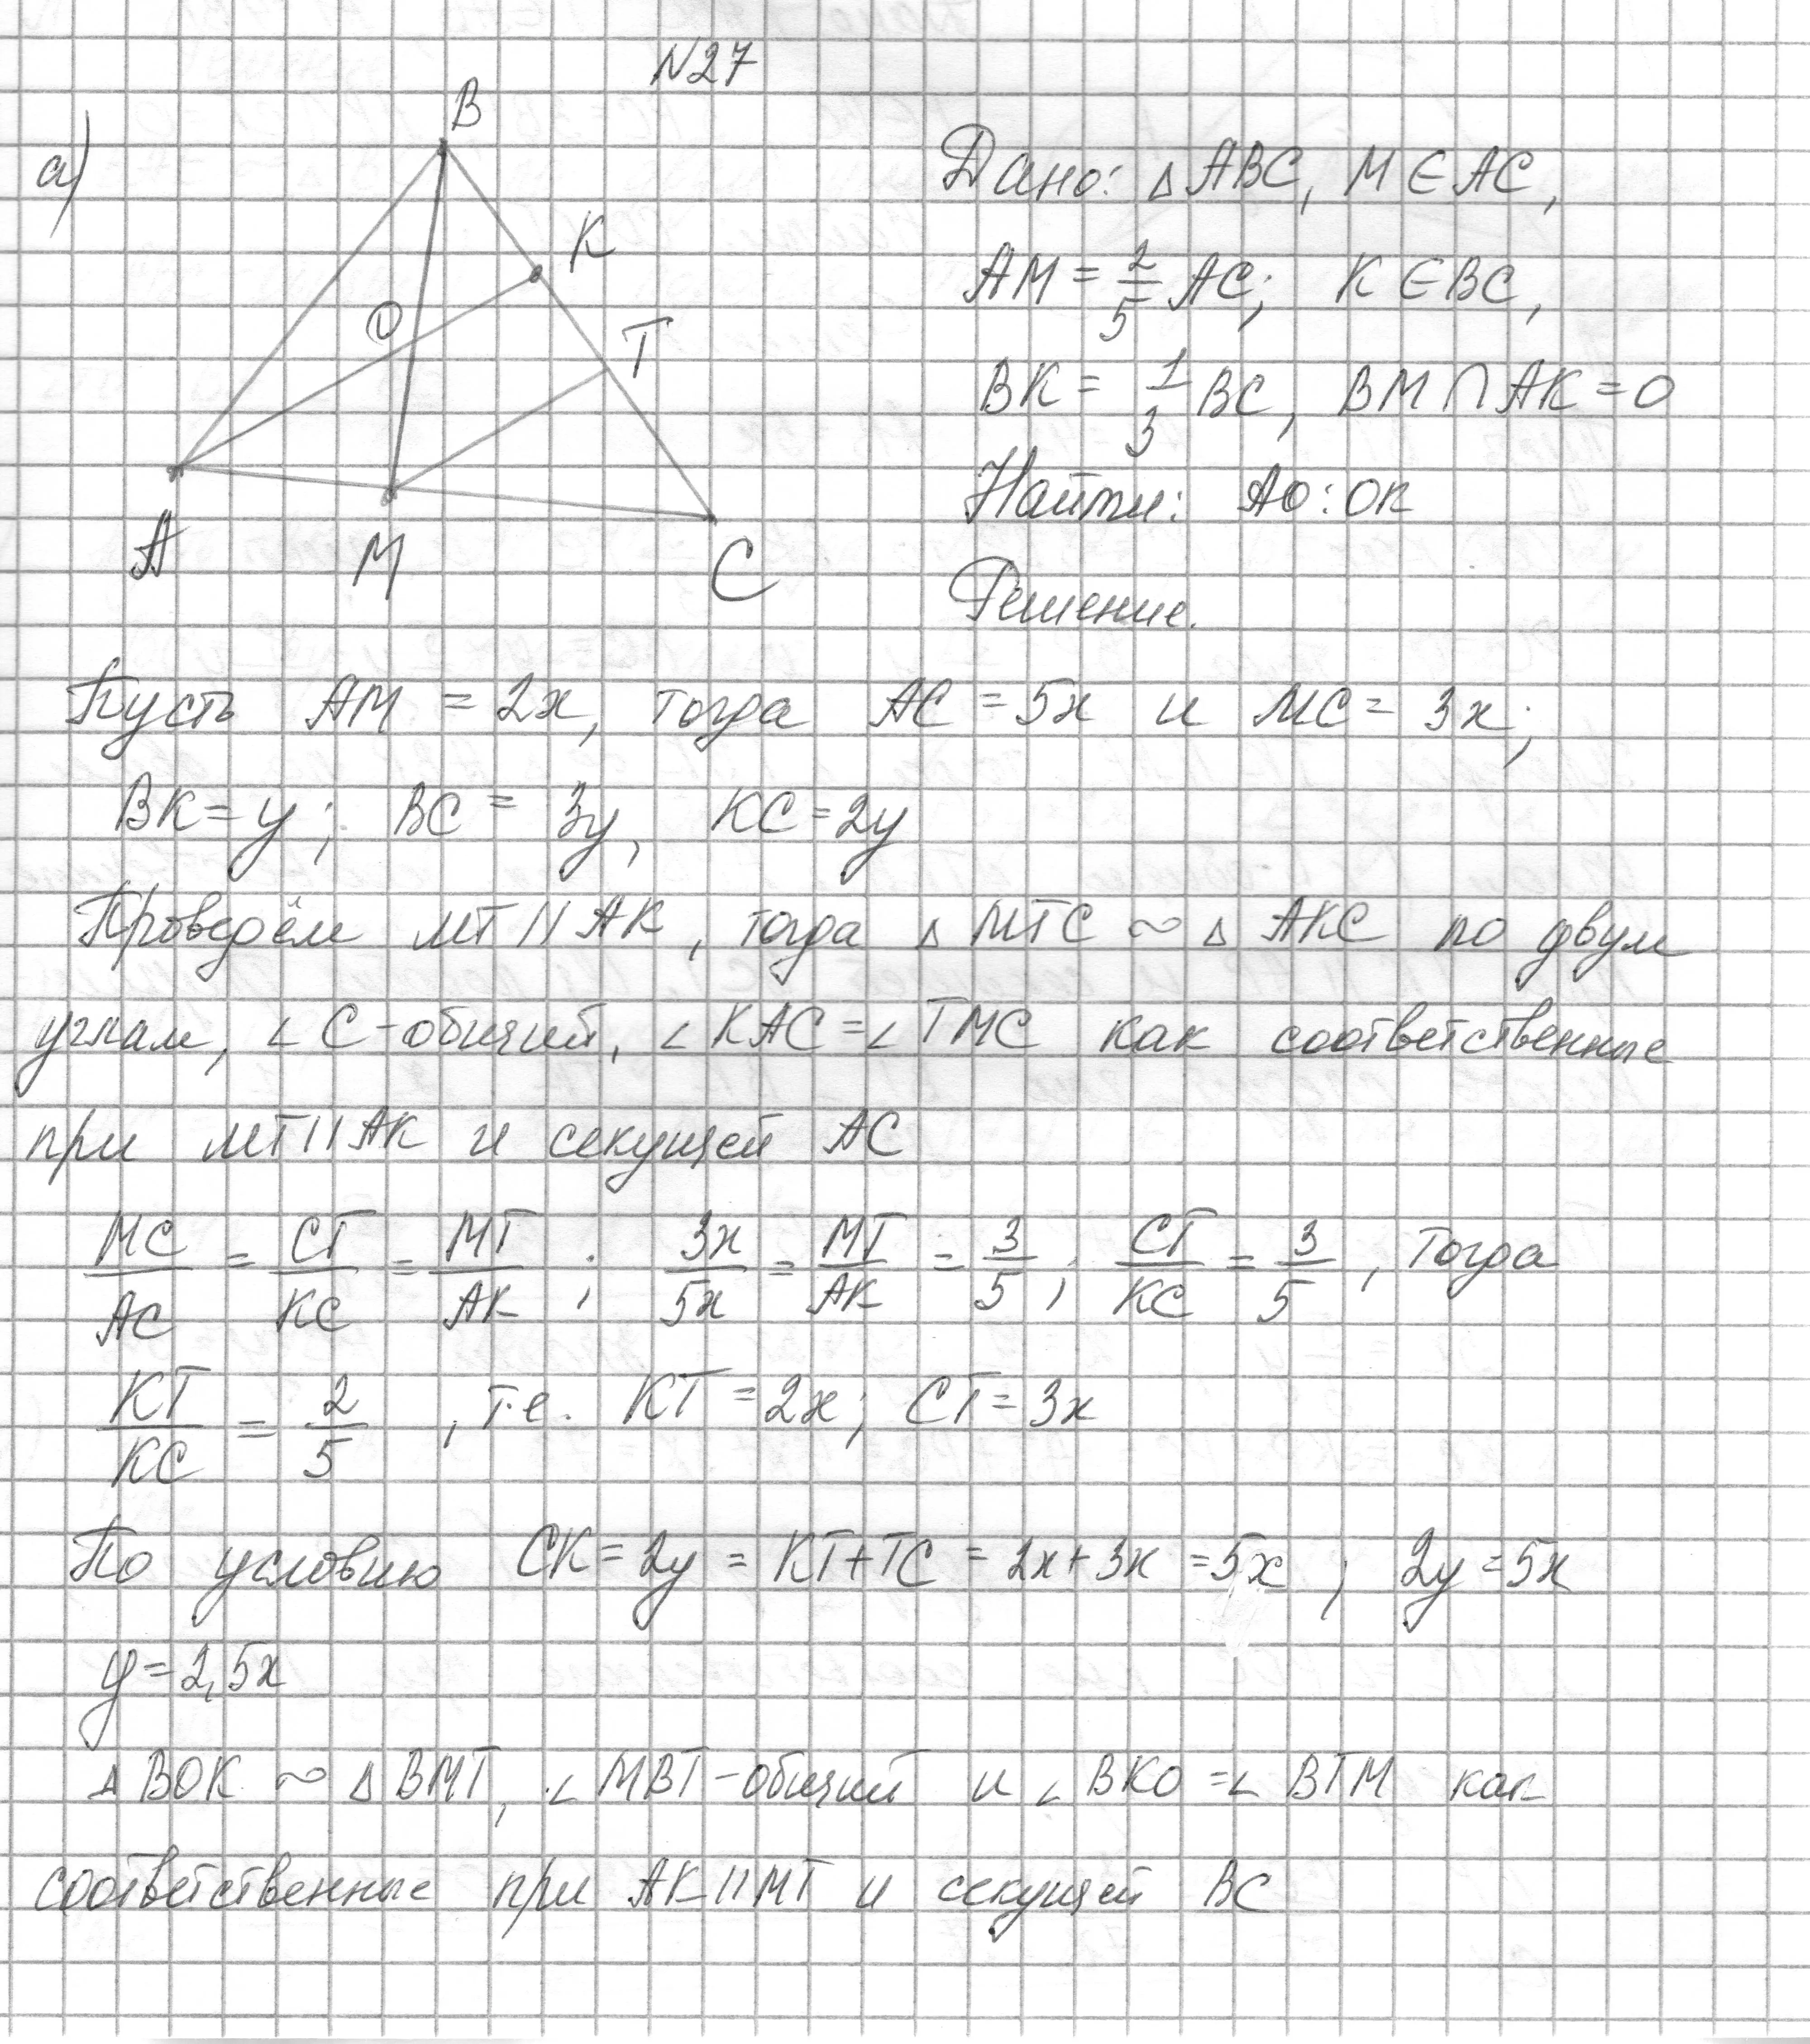 N27
а)
B
K
O
T
A
M
C
Дано: △ABC, M∈AC,
AM = 2/5 AC; K∈BC,
BK = 1/3 BC, BM∩AK=O
Найти: AO:OK
Решение.
Пусть AM = 2x, тогда AC = 5x и MC = 3x;
BK = y; BC = 3y, KC = 2y
Проведём MT || AK, тогда △MTC ∾ △AKC по двум
углам, ∠C-общий, ∠KAC = ∠TMC как соответственные
при MT||AK и секущей AC
MC/AC = CT/KC = MT/AK ; 3x/5x = MT/AK = 3/5 ; CT/KC = 3/5 , тогда
KT/KC = 2/5 , т.е. KT = 2x; CT = 3x
По условию CK = 2y = KT+TC = 2x+3x = 5x ; 2y = 5x
y = 2,5x
△BOK ∾ △BMT, ∠MBT-общий и ∠BKO = ∠BTM как
соответственные при AK||MT и секущей BC